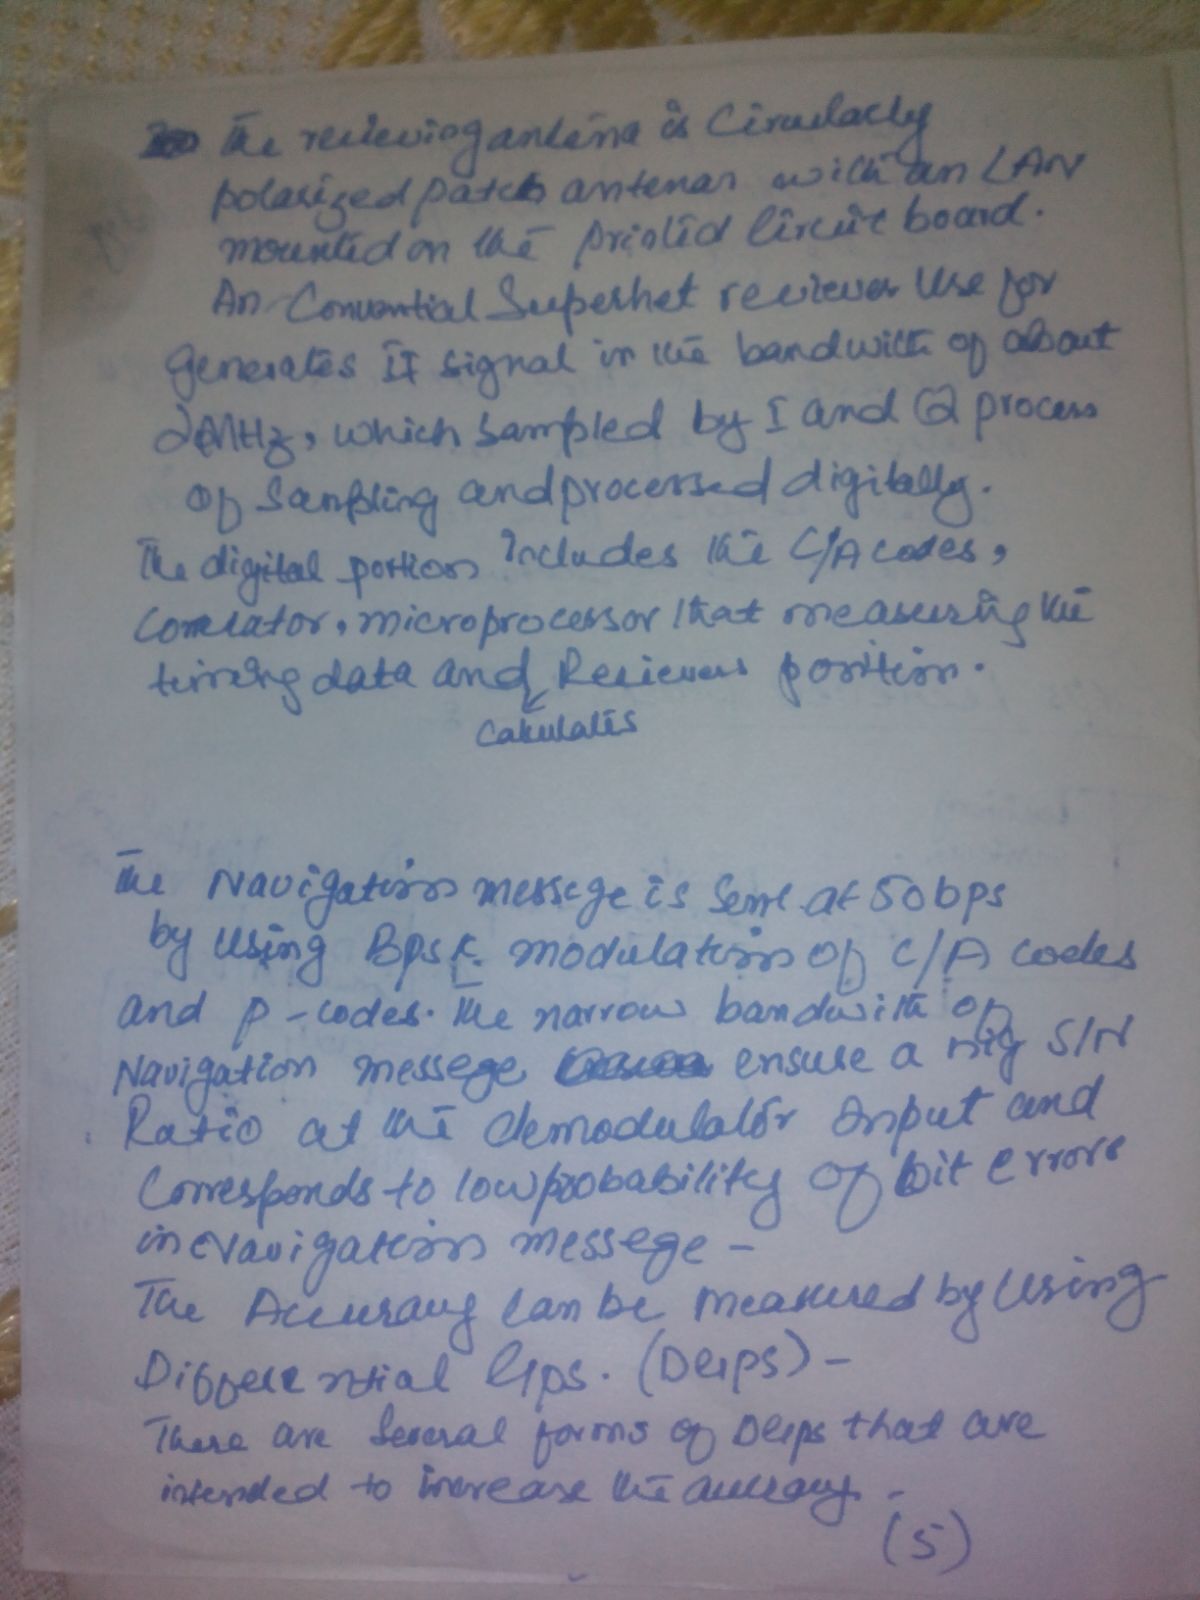 The recieving antenna is Circularly
polarized patch antenar with an LAN
mounted on the printed Circuit board.
An Convential Superhet reciever Use for
generates IF signal in the bandwith of about
2MHz, which sampled by I and Q process
of Sampling and processed digitally.
The digital portion includes the C/A codes,
Correlator, microprocessor that measuring the
timing data and Recievers position.
Calculates
The Navigation messege is Sent at 50bps
by Using Bpsk modulation of C/A codes
and p-codes. The narrow bandwith of
Navigation messege ensure a hig S/N
Ratio at the demodulator Input and
Corresponds to low probability of bit errors
in Navigation messege -
The Accuracy Can be measured by Using
Differential Gps. (DGps) -
There are Several forms of DGps that are
intended to increase the accuracy -
(5)